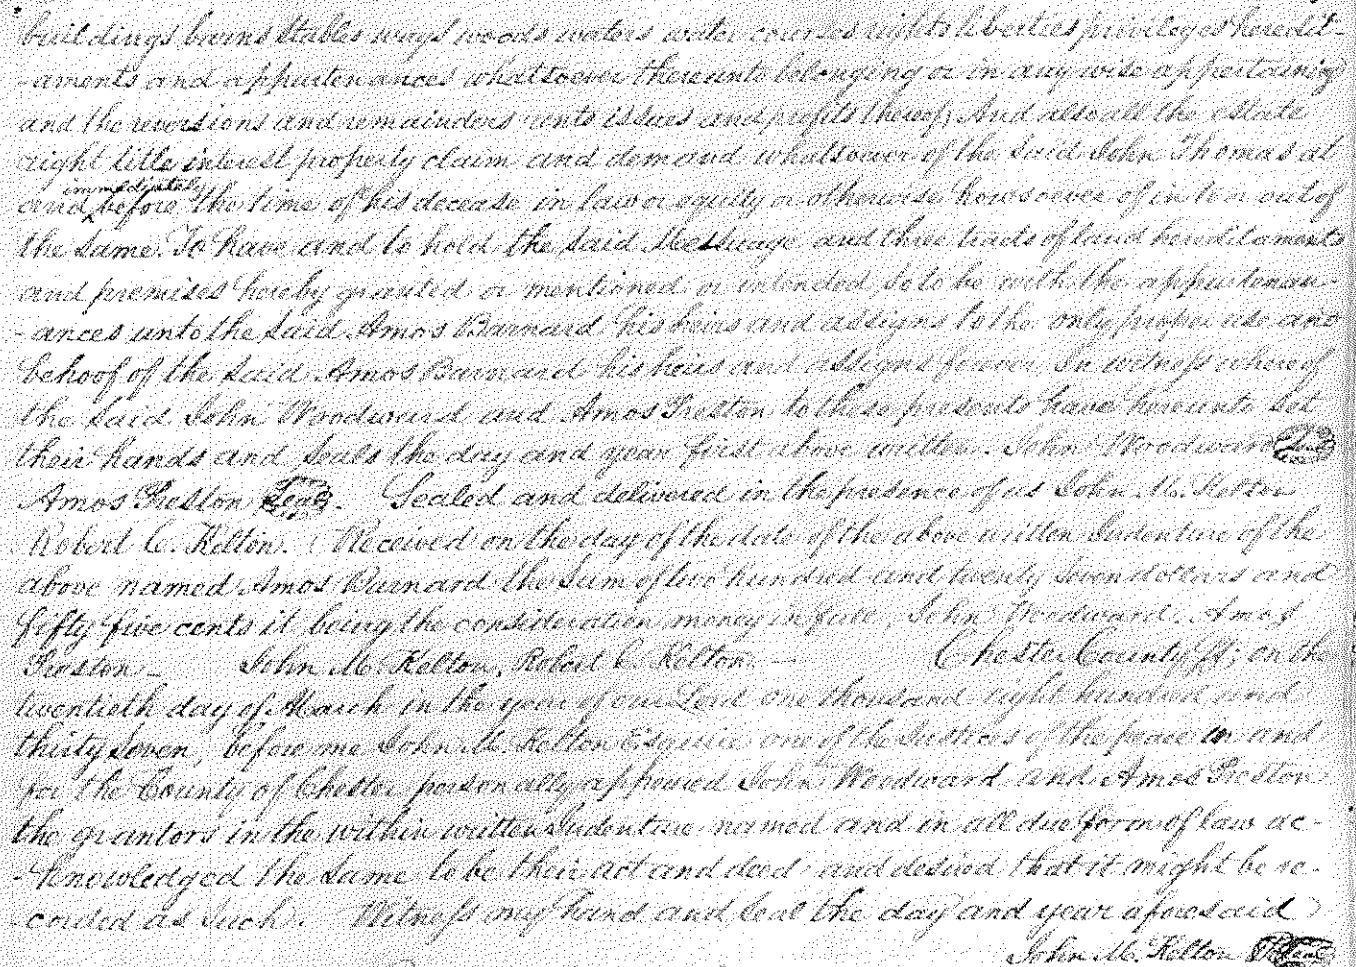 buildings barns stables ways woods waters water courses rights liberties privileges heredit-
-aments and appurtenances whatsoever thereunto belonging or in any wise appertaining
and the reversions and remainders rents issues and profits thereof; And also all the estate
right title interest property claim and demand whatsoever of the said John Thomas at
immediately
and ^ before the time of his decease in law or equity or otherwise howsoever of in to or out of
the same. To have and to hold the said Messuage and three tracts of land hereditaments
and premises hereby granted or mentioned or intended so to be with the appurtenan-
-ances unto the said Amos Barnard his heirs and assigns to the only proper use and
behoof of the said Amos Barnard his heirs and assigns forever. In witness whereof
the said John Woodward and Amos Preston to these presents have hereunto set
their hands and seals the day and year first above written. John Woodward Seal
Amos Preston Seal. Sealed and delivered in the presence of us John M. Kelton
Robert C. Kelton. Received on the day of the date of the above written Indenture of the
above named Amos Barnard the sum of two hundred and twenty seven dollars and
fifty five cents it being the consideration money in full. John Woodward. Amos
Preston - John M. Kelton, Robert C. Kelton. - Chester County Ss; on the
twentieth day of March in the year of our Lord one thousand eight hundred and
thirty seven, before me John M. Kelton Esquire one of the Justices of the peace in and
for the County of Chester personally appeared John Woodward and Amos Preston
the grantors in the within written Indenture named and in all due form of law ac-
-knowledged the same to be their act and deed and desired that it might be re-
-corded as such. Witness my hand and seal the day and year aforesaid
John M. Kelton Seal